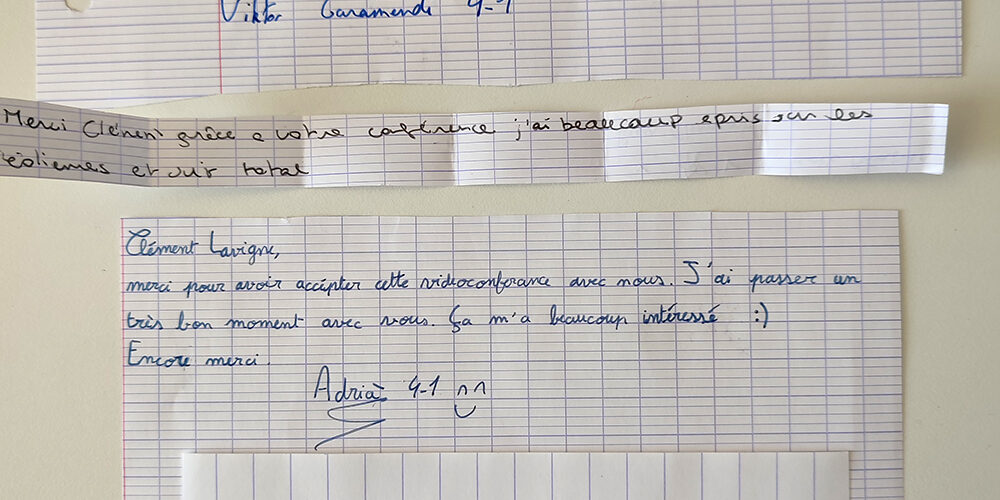 Viktor Garamendi 4-1
Merci Clément grâce a votre conférence j'ai beaucoup apris sur les
éoliennes et sur total
Clément Lavigne,
merci pour avoir accépter cette videoconferance avec nous. J'ai passer un
très bon moment avec vous. Ça m'a beaucoup intéressé :)
Encore merci.
Adrià 4-1